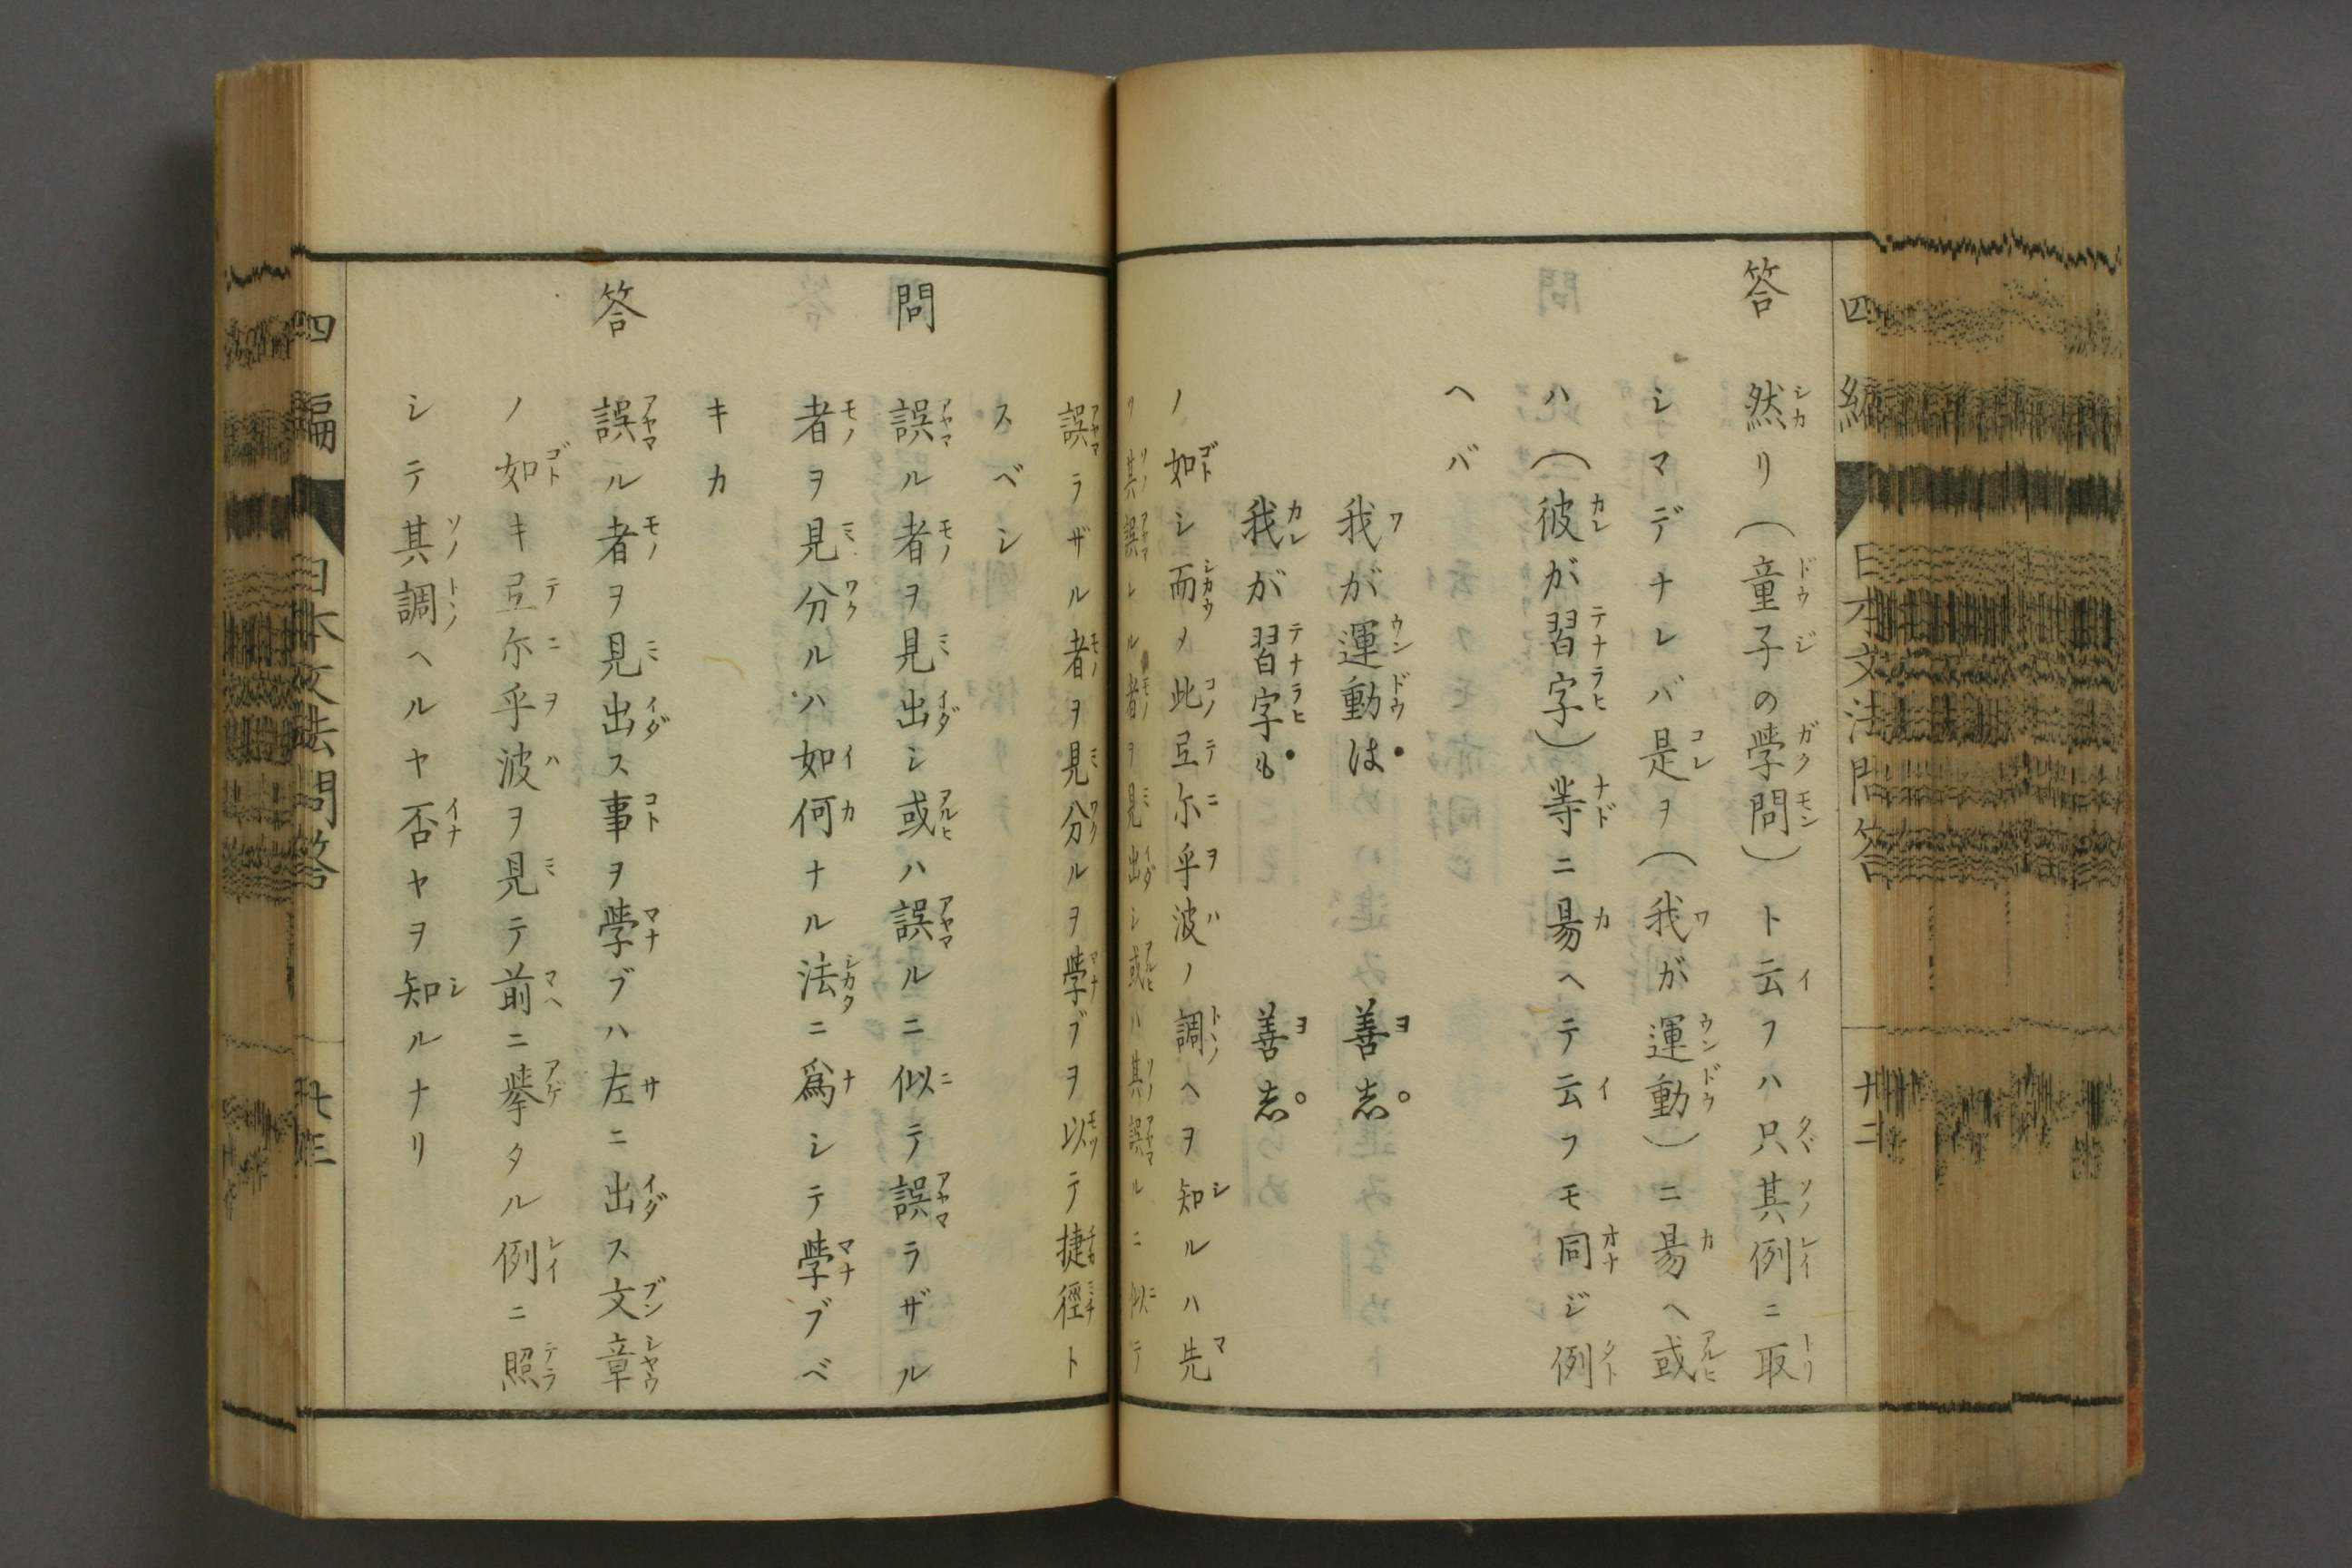 答 然リ(童子の學問)ト云フハ只其例ニ取
シマデナレバ是ヲ(我が運動)ニ易ヘ或
ハ(彼が習字)等ニ易ヘテ云フモ同ジ例
ヘバ
我が運動は 善志
我が習字も 善志
ノ如シ而メ此䇺尓乎波ノ調ヘヲ知ルハ先
ツ其誤レル者ヲ見出シ或ハ其誤ルニ似テ
誤ラザル者ヲ見分ルヲ學ブヲ以テ捷徑ト
スベシ
問 誤ル者ヲ見出シ或ハ誤ルニ似テ誤ラザル
者ヲ見分ルハ如何ナル法ニ爲シテ學ブベ
キカ
答 誤ル者ヲ見出ス事ヲ學ブハ左ニ出ス文章
ノ如キ䇺尓乎波ヲ見テ前ニ擧タル例ニ照
シテ其調ヘルヤ否ヤヲ知ルナリ
四編 日本文法問答